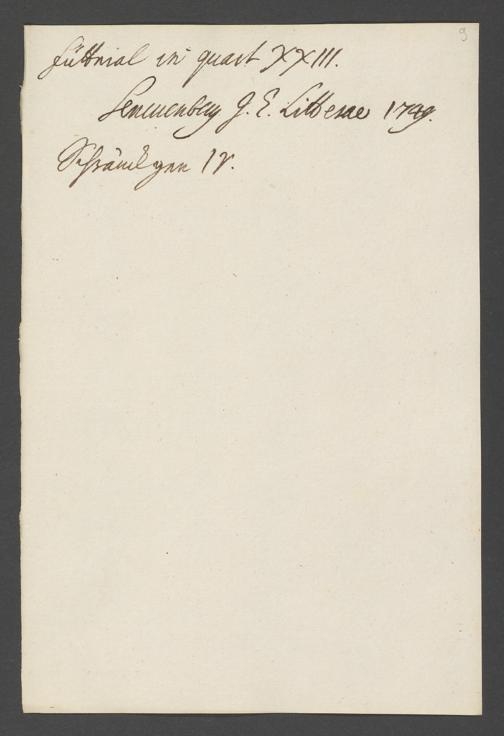 9
Futtrial in quart XXIII.
Senckenberg J. E. Litterae 1749.
Schränkgen IV.